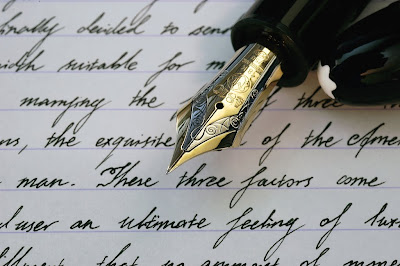 finally decided to sen
width suitable for m
marrying the of three
ns, the exquisite of the Ame
man. These three factors come
d user an ultimate feeling of lux
that no amount of